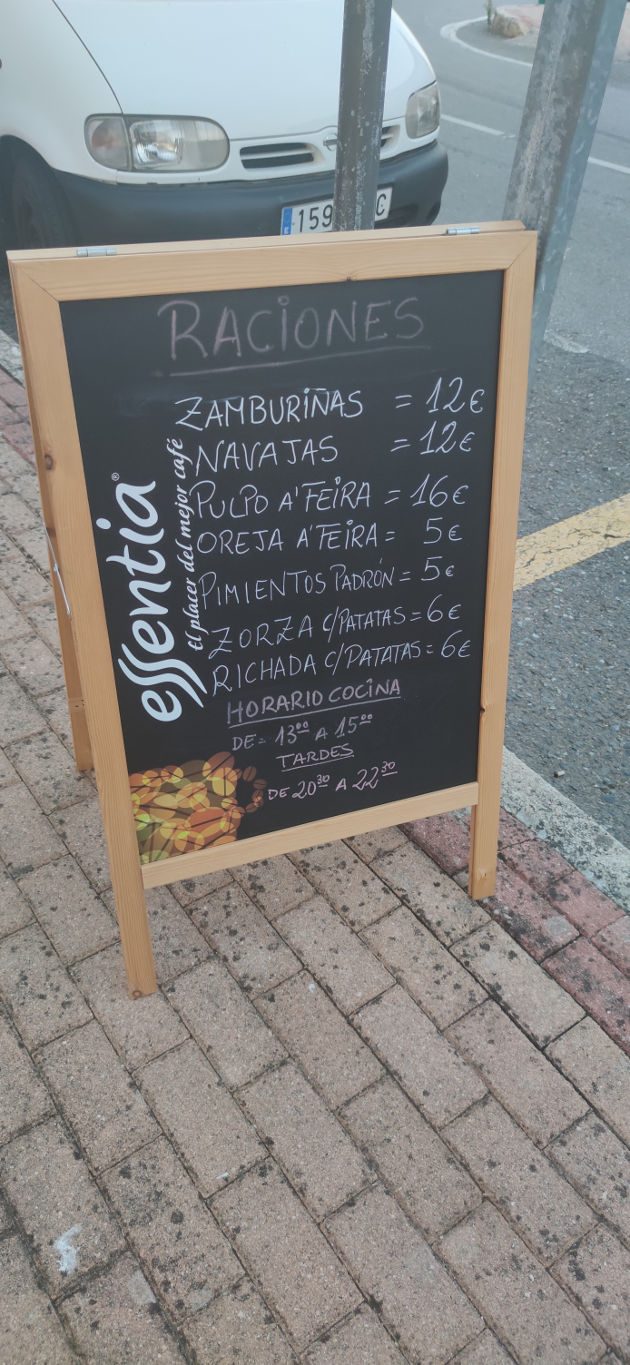 159
C
RACIONES
ZAMBURIÑAS = 12€
NAVAJAS = 12€
PULPO A'FEIRA = 16€
OREJA A'FEIRA = 5€
PIMIENTOS PADRÓN = 5€
ZORZA C/PATATAS = 6€
RICHADA C/PATATAS = 6€
HORARIO COCINA
DE = 13⁰⁰ A 15⁰⁰
TARDES
DE 20³⁰ A 22³⁰
essentia®
El placer del mejor café